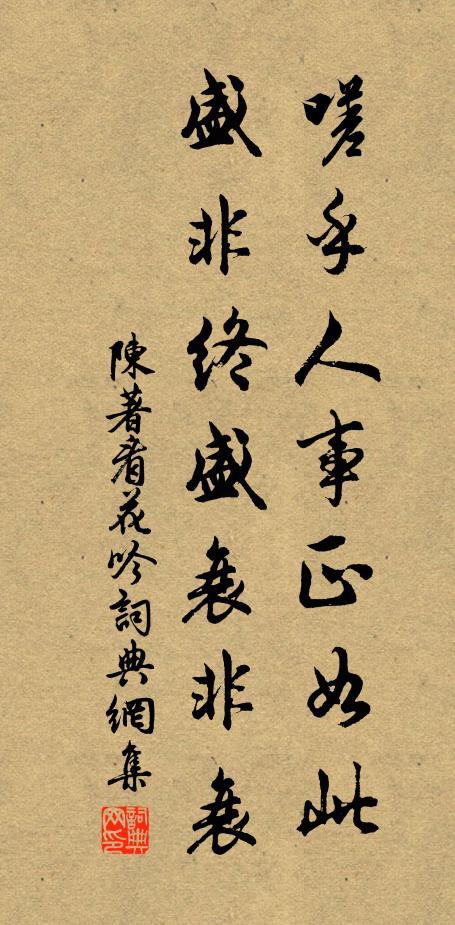 嗟乎人事正如此
盛非終盛衰非衰
陳著看花吟詞典網集
詞典网印